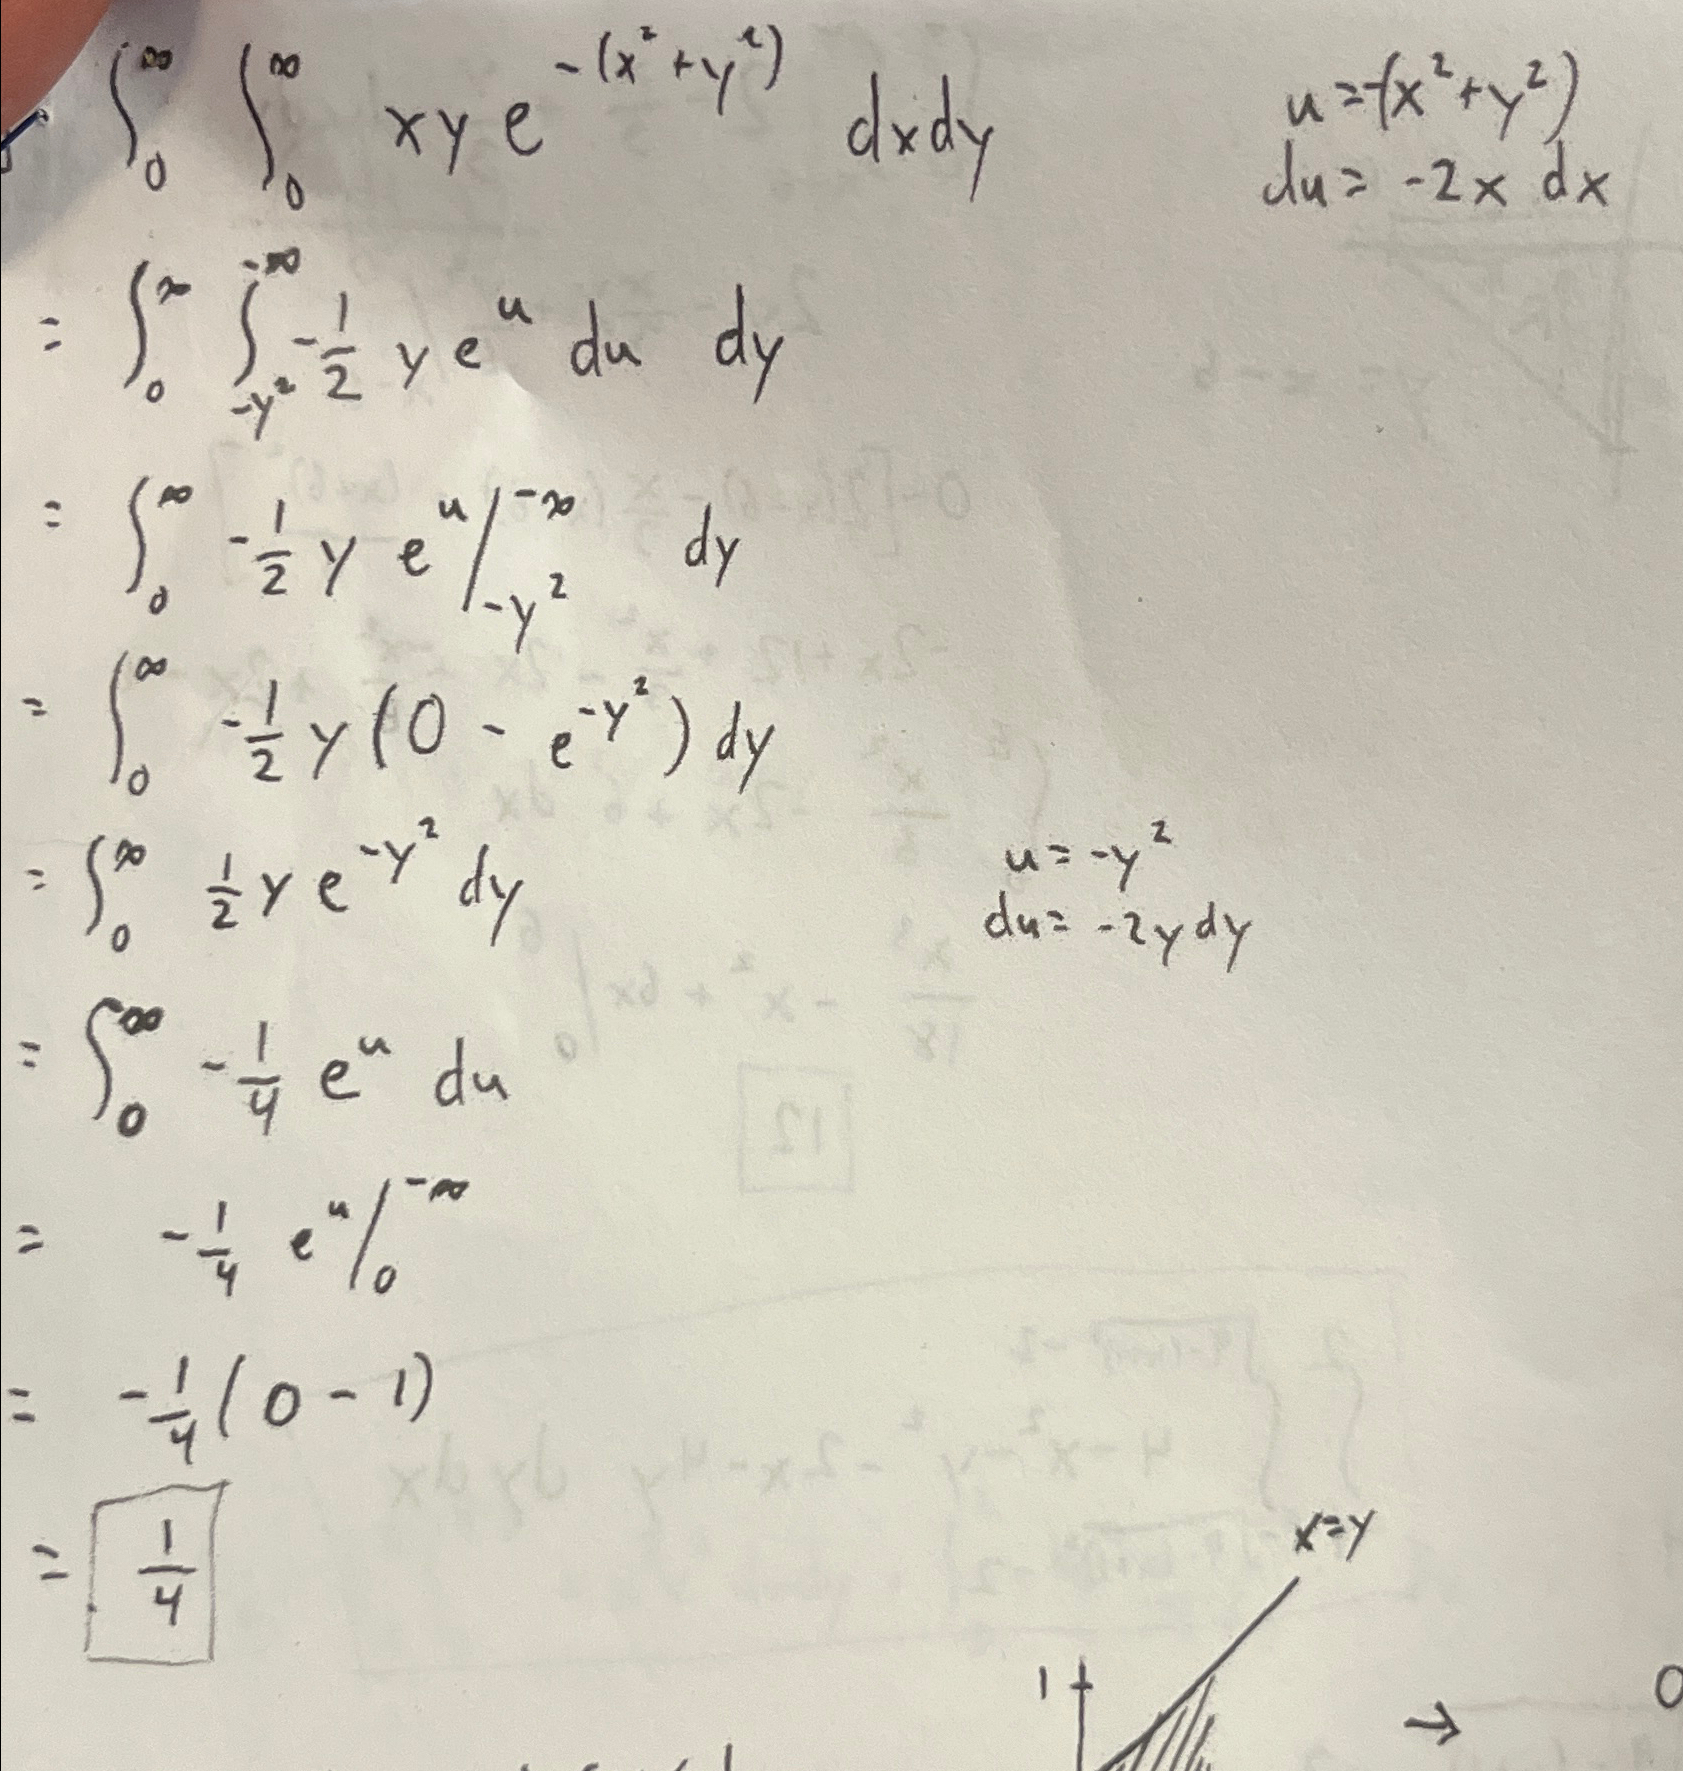 ∫₀^∞ ∫₀^∞ xy e^{-(x²+y²)} dxdy
u = -(x²+y²)
du = -2x dx
= ∫₀^∞ ∫_{-y²}^{-∞} -1/2 y e^u du dy
= ∫₀^∞ -1/2 y e^u /_{-y²}^{-∞} dy
= ∫₀^∞ -1/2 y (0 - e^{-y²}) dy
= ∫₀^∞ 1/2 y e^{-y²} dy
u = -y²
du = -2y dy
= ∫₀^{-∞} -1/4 e^u du
= -1/4 e^u /₀^{-∞}
= -1/4 (0 - 1)
= 1/4
x=y
1
→
0